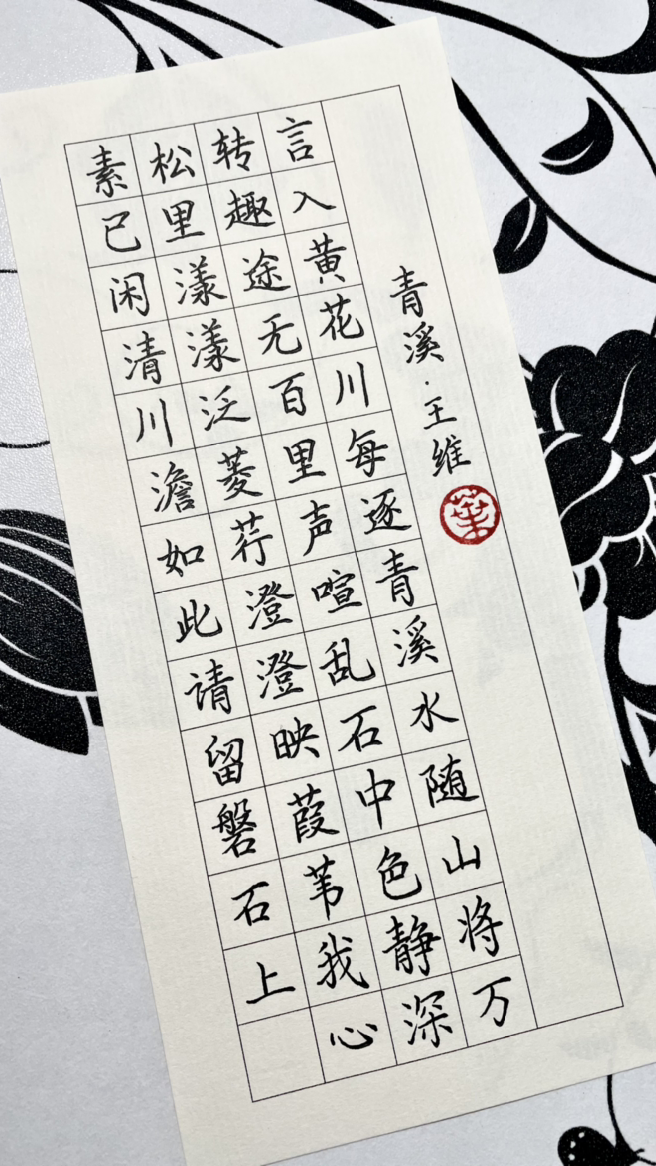 青溪·王维
葉
言入黄花川每逐青溪水随山将万
转趣途无百里声喧乱石中色静深
松里漾漾泛菱荇澄澄映葭苇我心
素已闲清川澹如此请留磐石上